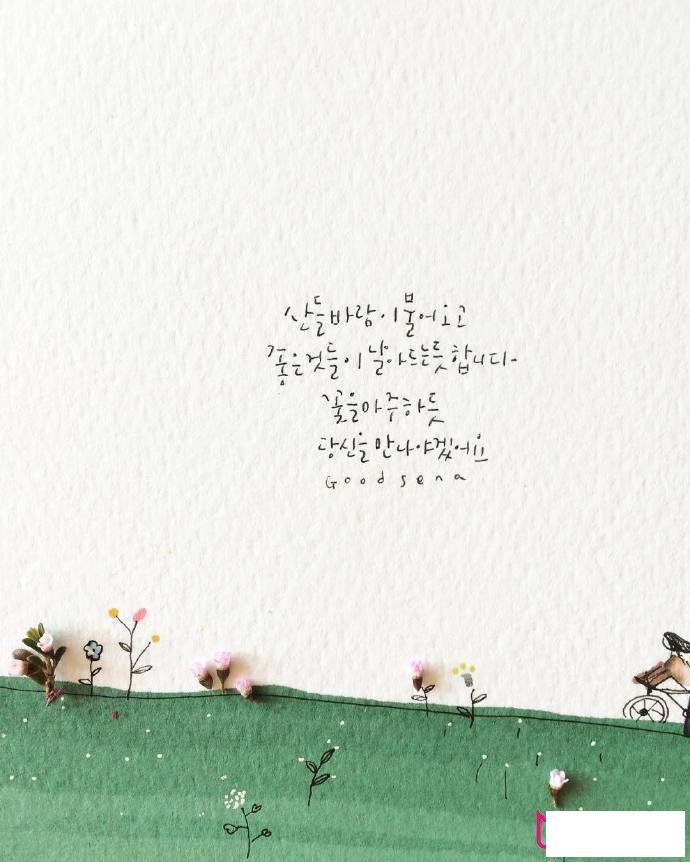 산들바람이 불어오고
좋은것들이 날아드는듯 합니다.
꽃을 마주하듯
당신을 만나야겠어요
Goodsena